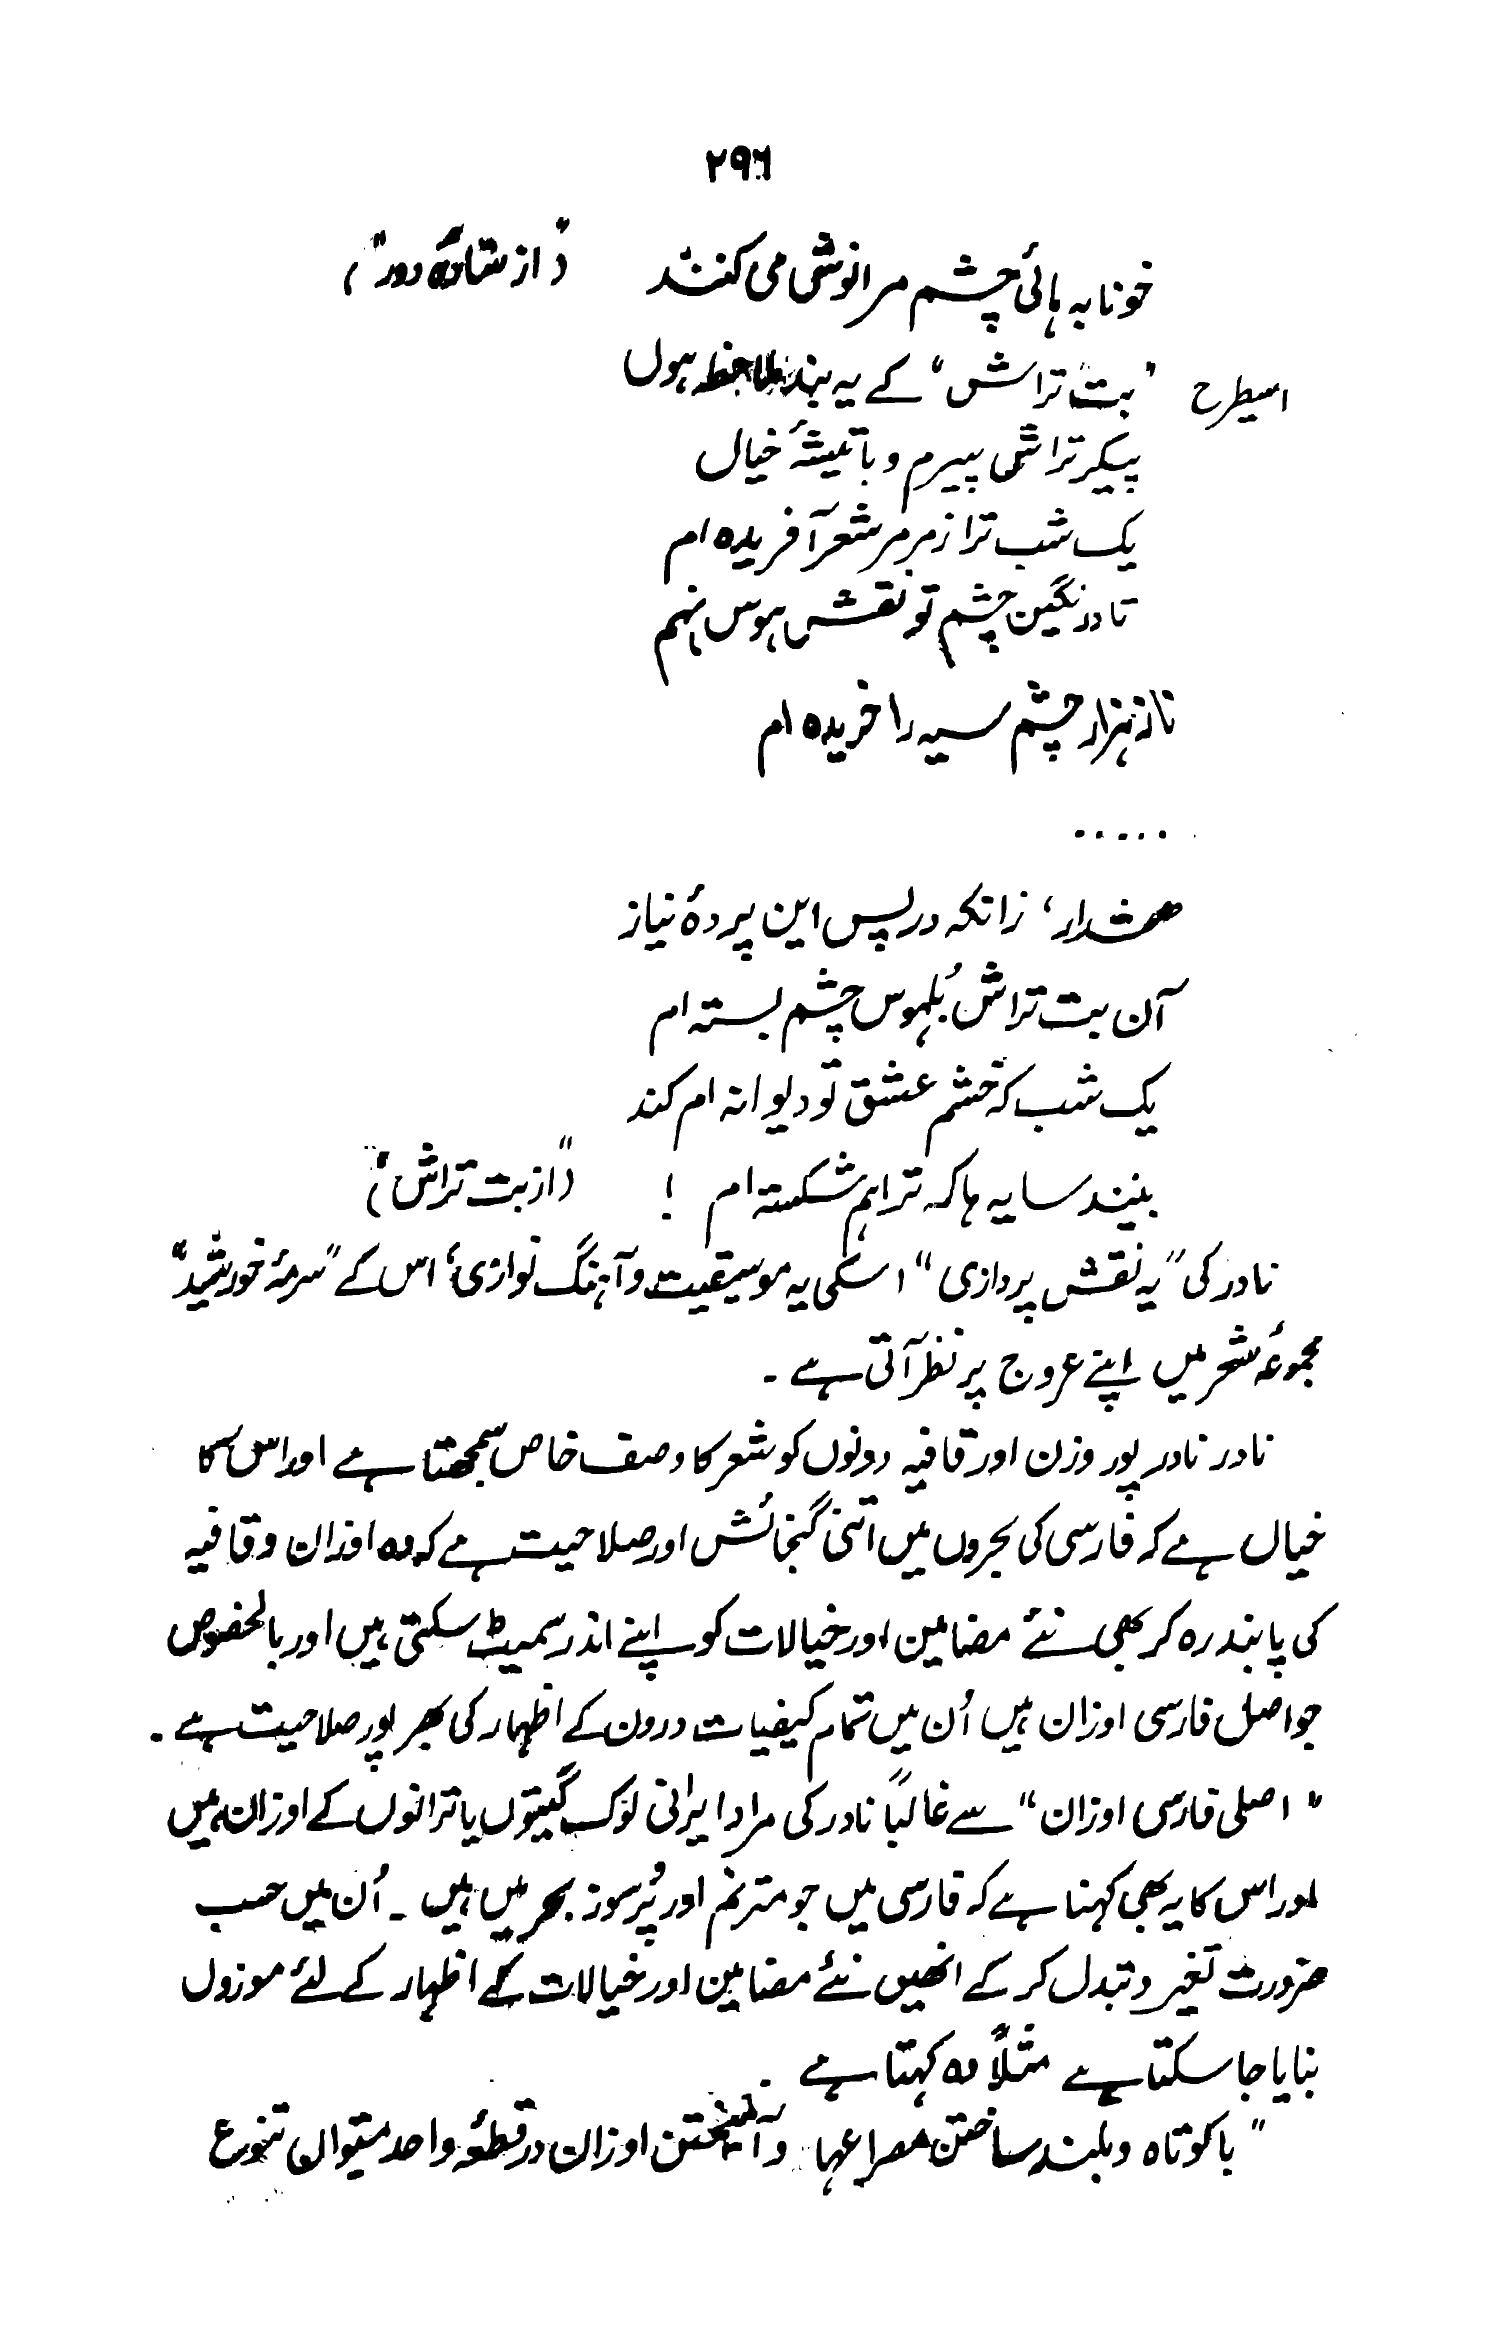 ۲۹۶
خونابہ ہائی چشم مرا نوش می کنند (از ستارۂ دور")
اسیطرح "بت تراش" کے یہ بند ملاحظہ ہوں
پیکر تراش پیرم و با تیشۂ خیال
یک شب ترا ز مرمر شعر آفریدہ ام
تا در نگین چشم تو نقش ہوس نہم
ناز ہزار چشم سیہ را خریدہ ام
.....
ھشدار، زانکہ در پس این پردۂ نیاز
آن بت تراش بُلہوس چشم بستہ ام
یک شب کہ خشم عشق تو دیوانہ ام کند
بینند سایہ ہا کہ ترا ہم شکستہ ام ! ("از بت تراش")
نادر کی "یہ نقش پردازی" اسکی یہ موسیقیت و آہنگ نوازی، اس کے "سرمۂ خورشید"
مجموعۂ شعر میں اپنے عروج پر نظر آتی ہے ۔
نادر نادر پور وزن اور قافیہ دونوں کو شعر کا وصف خاص سمجھتا ہے اور اس کا
خیال ہے کہ فارسی کی بحروں میں اتنی گنجائش اور صلاحیت ہے کہ وہ اوزان و قافیہ
کی پابند رہ کر بھی نئے مضامین اور خیالات کو اپنے اندر سمیٹ سکتی ہیں اور بالخصوص
جو اصل فارسی اوزان ہیں اُن میں تمام کیفیات درون کے اظہار کی بھرپور صلاحیت ہے ۔
"اصلی فارسی اوزان" سے غالباً نادر کی مراد ایرانی لوک گیتوں یا ترانوں کے اوزان ہیں
اور اس کا یہ بھی کہنا ہے کہ فارسی میں جو مترنم اور پُر سوز بحریں ہیں ۔ اُن میں حسب
ضرورت تغیر و تبدل کر کے انھیں نئے مضامین اور خیالات کے اظہار کے لئے موزوں
بنایا جا سکتا ہے مثلاً وہ کہتا ہے ۔
"با کوتاہ و بلند ساختن مصراعہا و آمیختن اوزان در قطعۂ واحد میتوان تنوع